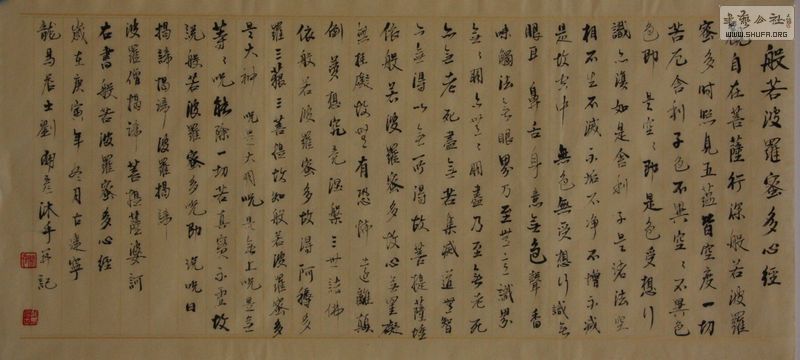 般若波羅蜜多心經
觀自在菩薩行深般若波羅
蜜多時照見五蘊皆空度一切
苦厄舍利子色不異空空不異色
色即是空空即是色受想行
識亦復如是舍利子是諸法空
相不生不滅不垢不净不增不减
是故空中無色無受想行識無
眼耳鼻舌身意無色聲香
味觸法無眼界乃至無意識界
無無明亦無無明盡乃至無老死
亦無老死盡無苦集滅道無智
亦無得以無所得故菩提薩埵
依般若波羅蜜多故心無罣礙
無挂礙故無有恐怖遠離顛
倒夢想究竟涅槃三世諸佛
依般若波羅蜜多故得阿耨多
羅三藐三菩提故知般若波羅蜜多
是大神咒是大明咒是無上咒是無
等等咒能除一切苦真實不虛故
説般若波羅蜜多咒即説咒曰
揭諦揭諦波羅揭諦
波羅僧揭諦菩提薩婆訶
右書般若波羅蜜多心經
歲在庚寅年冬月古建寧
龍馬居士劉沐手拜記
書藝公社
WWW.SHUFA.ORG